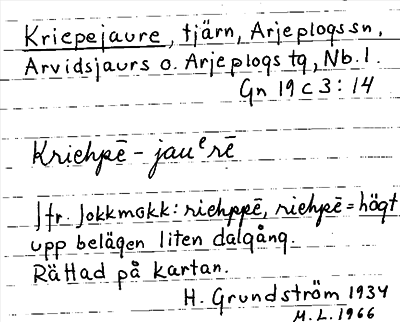 Kriepejaure, tjärn, Arjeplogs sn,
Arvidsjaurs o. Arjeplogs tg, Nb. l.
Gn 19 c 3 : 14
Kriehpē - jauᵉrē
Jfr. Jokkmokk: riehppē, riehpē = högt
upp belägen liten dalgång.
Rättad på kartan.
H. Grundström 1934
M. L. 1966